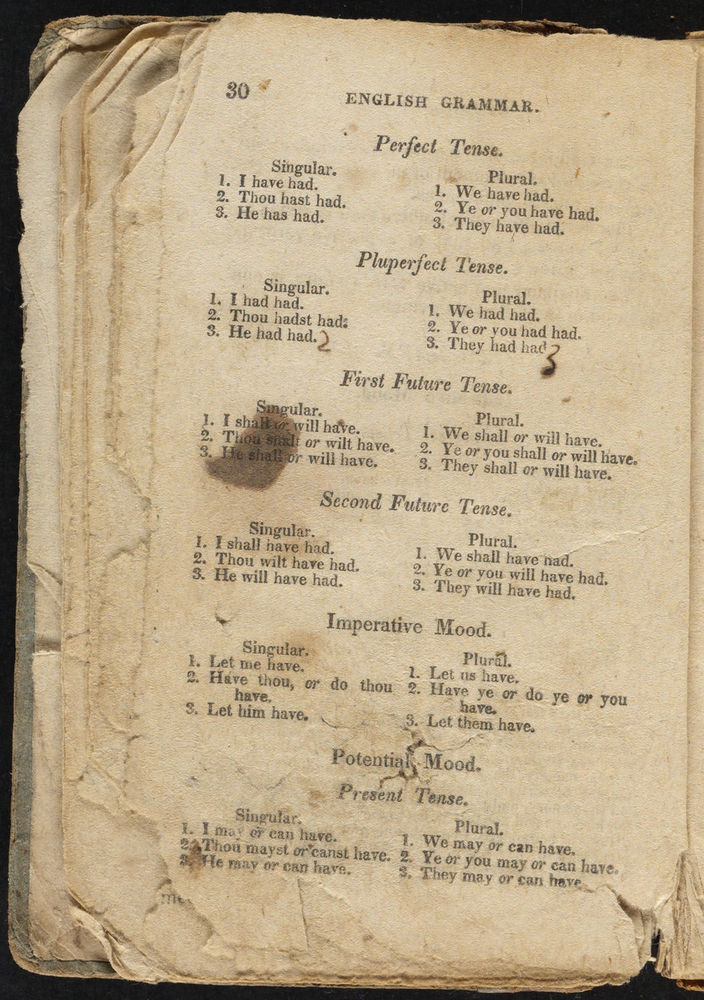 30
ENGLISH GRAMMAR.
Perfect Tense.
Singular.
1. I have had.
2. Thou hast had.
3. He has had.
Plural.
1. We have had.
2. Ye or you have had.
3. They have had.
Pluperfect Tense.
Singular.
1. I had had.
2. Thou hadst had:
3. He had had. 2
Plural.
1. We had had.
2. Ye or you had had.
3. They had had 3
First Future Tense.
Singular.
1. I shall or will have.
2. Thou shalt or wilt have.
3. He shall or will have.
Plural.
1. We shall or will have.
2. Ye or you shall or will have.
3. They shall or will have.
Second Future Tense.
Singular.
1. I shall have had.
2. Thou wilt have had.
3. He will have had.
Plural.
1. We shall have had.
2. Ye or you will have had.
3. They will have had.
Imperative Mood.
Singular.
1. Let me have.
2. Have thou, or do thou
have.
3. Let him have.
Plural.
1. Let us have.
2. Have ye or do ye or you
have.
3. Let them have.
Potential Mood.
Present Tense.
Singular.
1. I may or can have.
2. Thou mayst or canst have.
3. He may or can have.
Plural.
1. We may or can have.
2. Ye or you may or can have.
3. They may or can have